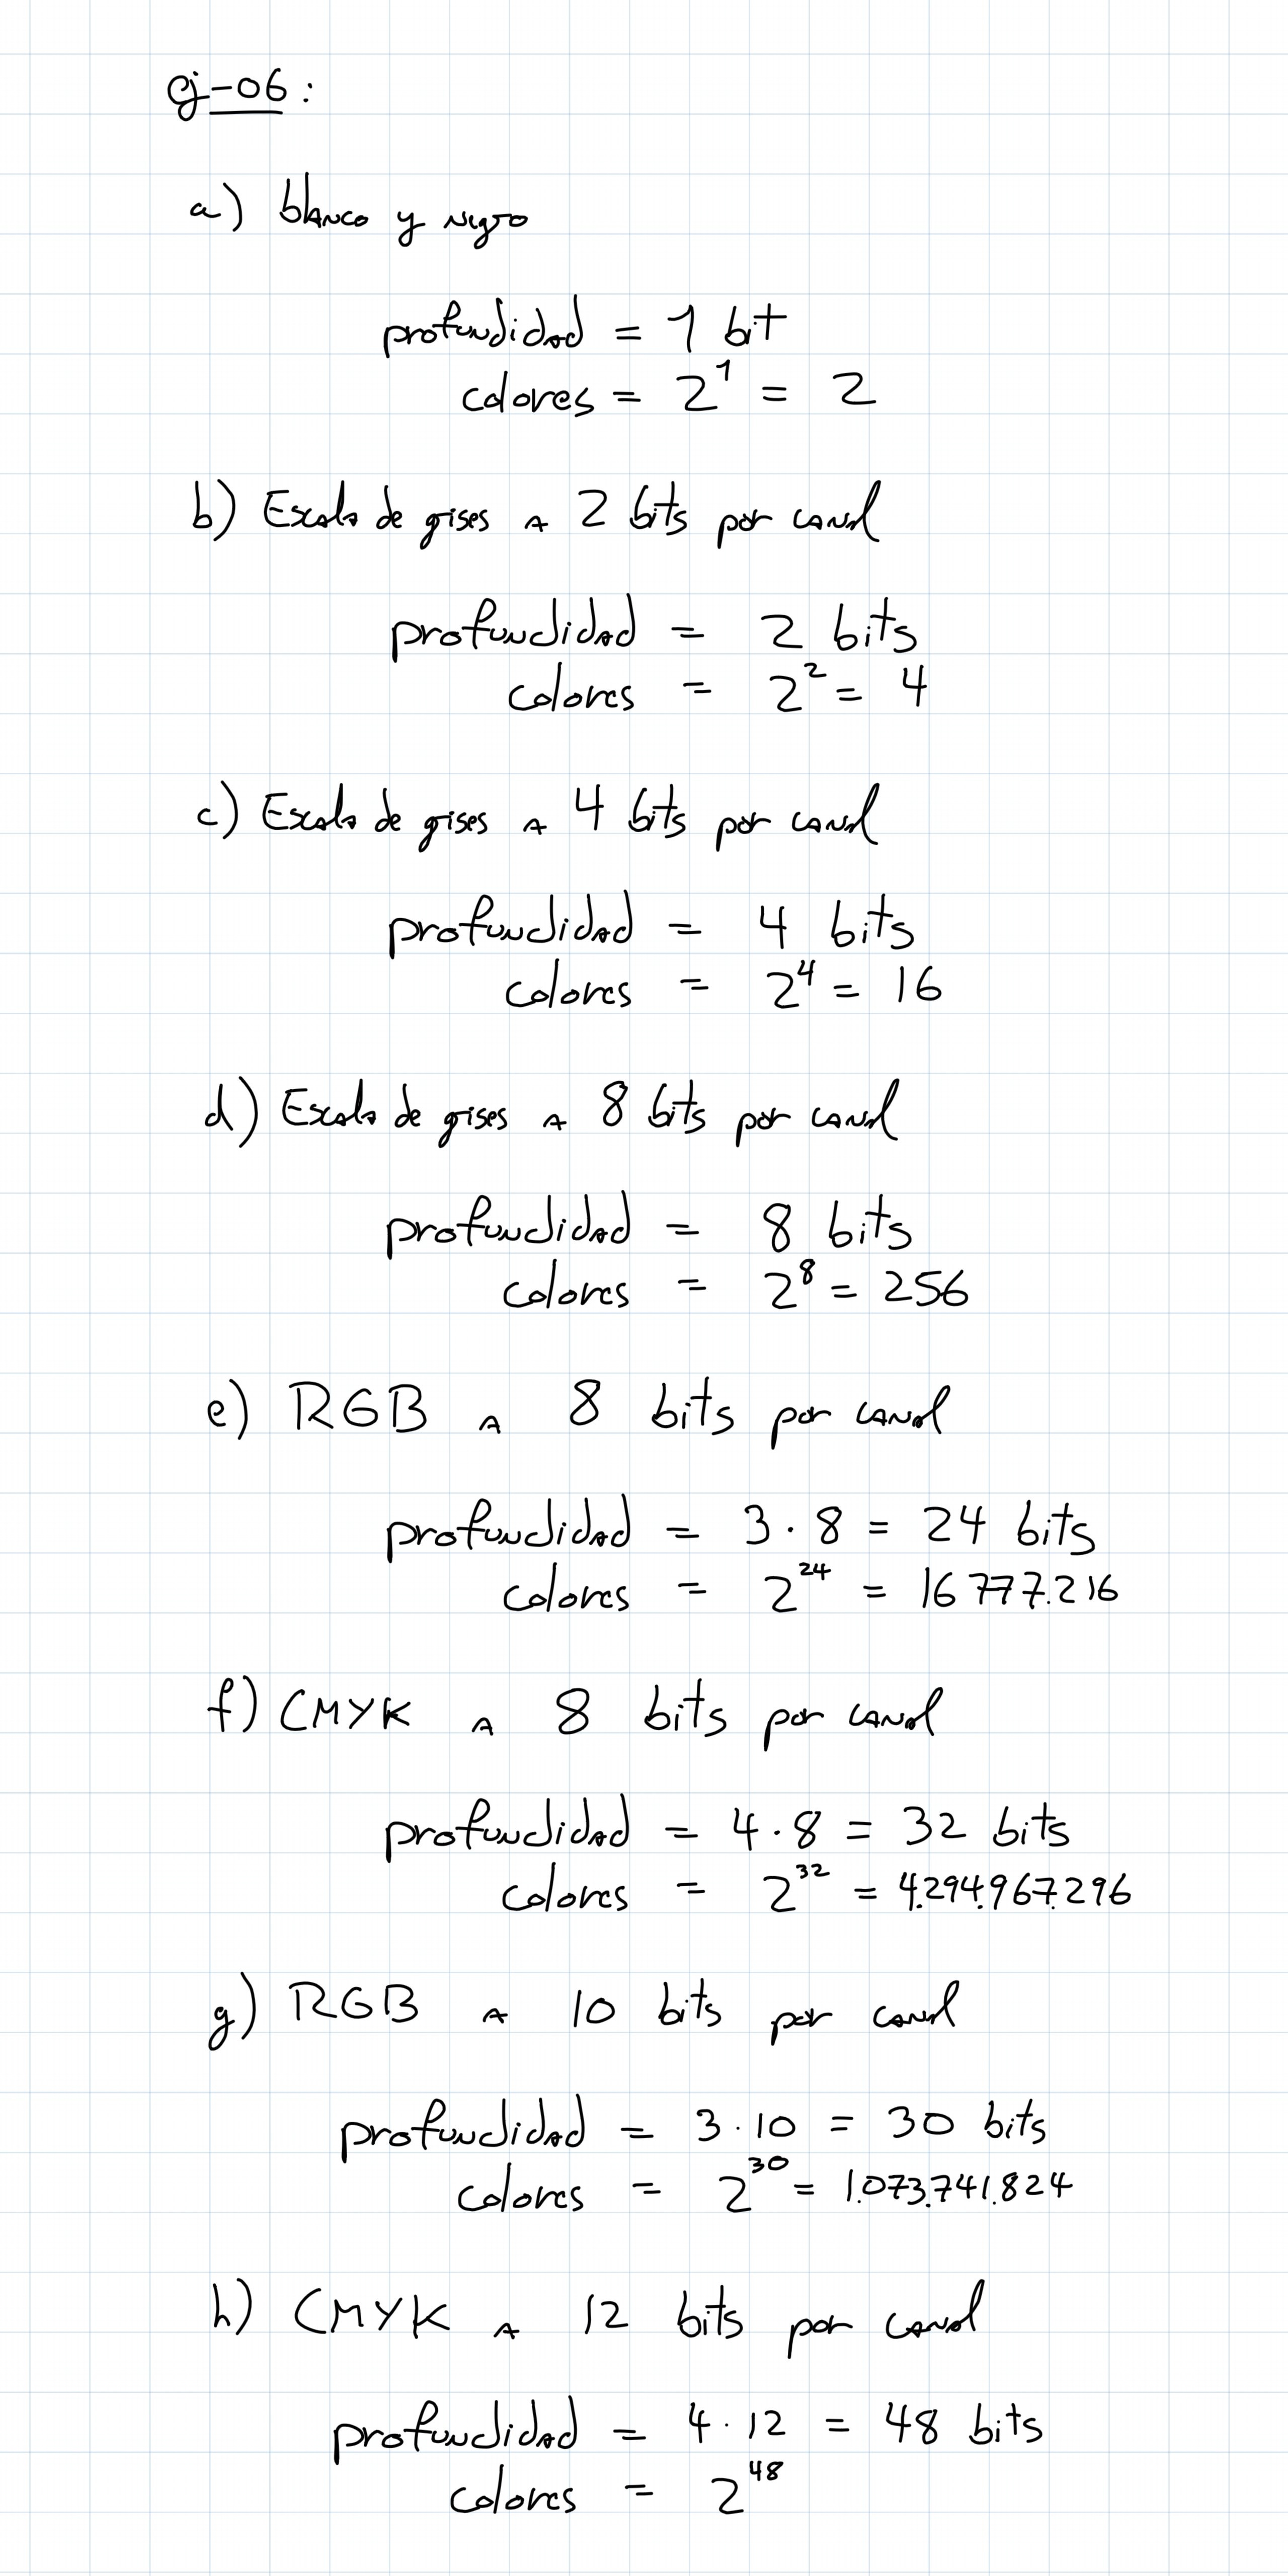 ej-06:
a) blanco y negro
profundidad = 1 bit
colores = 2^1 = 2
b) Escala de grises A 2 bits por canal
profundidad = 2 bits
colores = 2^2 = 4
c) Escala de grises A 4 bits por canal
profundidad = 4 bits
colores = 2^4 = 16
d) Escala de grises A 8 bits por canal
profundidad = 8 bits
colores = 2^8 = 256
e) RGB A 8 bits por canal
profundidad = 3 · 8 = 24 bits
colores = 2^24 = 16 777.216
f) CMYK A 8 bits por canal
profundidad = 4 · 8 = 32 bits
colores = 2^32 = 4.294.967.296
g) RGB A 10 bits por canal
profundidad = 3 · 10 = 30 bits
colores = 2^30 = 1.073.741.824
h) CMYK A 12 bits por canal
profundidad = 4 · 12 = 48 bits
colores = 2^48